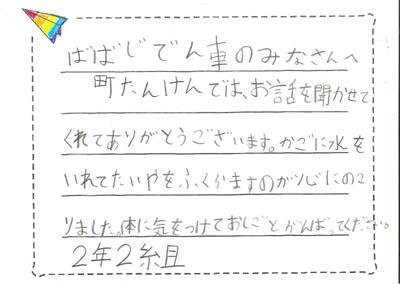 ばばじでん車のみなさんへ
町たんけんでは、お話を聞かせて
くれてありがとうございます。かごに水を
いれてたいやをふくらますのが心にのこ
りました。体に気をつけておしごとがんばってください。
2年2組